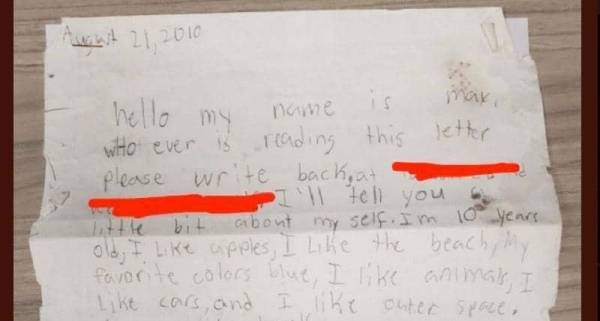 August 21, 2010
hello my name is max,
who ever is reading this letter
please write back, at
I'll tell you a
little bit about my self. I'm 10 years
old, I Like apples, I Like the beach, My
favorite colors blue, I like animals, I
Like cars, and I like outer space.